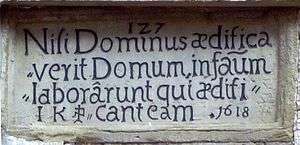 127
Niſi Dominus ædifica
verit Domum, in faūm
laborârunt qui ædifi
I K cant eam 1618